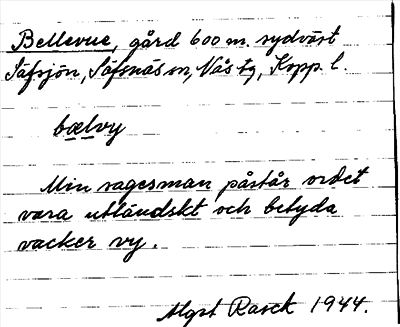 Bellevue, gård 600 m. sydväst
Säfsjön, Säfsnäs sn, Nås tg, Kopp. l.
bælvy
Min sagesman påstår ordet
vara utländskt och betyda
vacker vy.
Algot Rasck 1944.